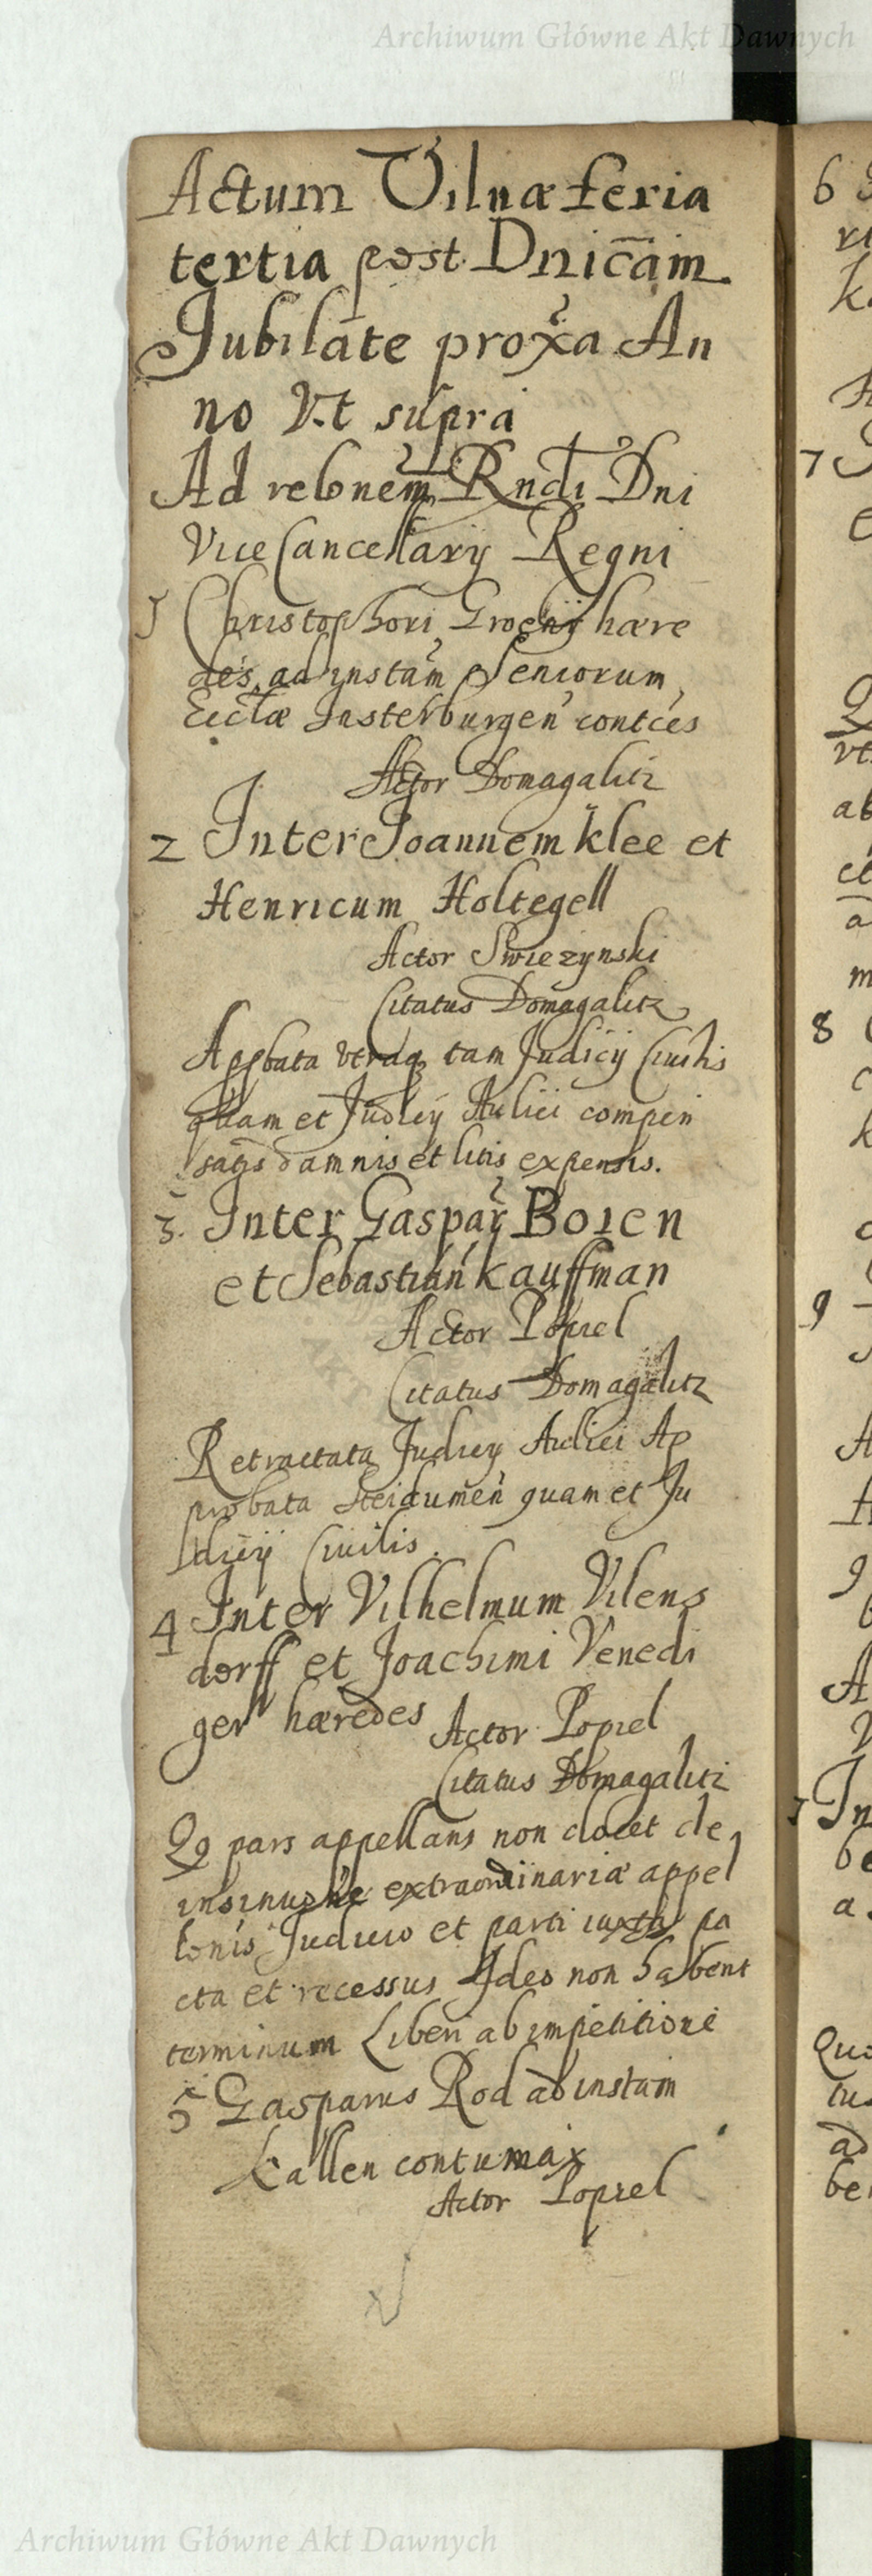 Archiwum Główne Akt Dawnych
Actum Vilnæ feria
tertia post Dnicam
Jubilate proxa An
no Vt supra
Ad relonem Rndi Dni
Vice Cancellarij Regni
1 Christophori hære
des ad instam Seniorum
Eiclæ Insterburgen contces
Actor Domagalitz
2 Inter Joannem Klee et
Henricum Holtegell
Actor Swiezynski
Citatus Domagalitz
Appbata vtraq tam Judicij Ciuilis
quam et Judicij Aulici compen
satis damnis et litis expensis.
3. Inter Gaspar Boien
et Sebastian Kauffman
Actor Popiel
Citatus Domagalitz
Retractata Judicij Aulici Ap
probata quam et Ju
dicij Ciuilis.
4 Inter Vilhelmum Vilens
dorff et Joachimi Venedi
ger hæredes Actor Popiel
Citatus Domagalitz
Qo pars appellans non docet de
extraordinariæ appel
lonis Judicio et parti iuxta pa
cta et recessus Ideo non habent
terminum Liberi ab impetitione
5 Gasparus Rod ad instam
Kallen contumax
Actor Popiel
6
7
8
9
Archiwum Główne Akt Dawnych